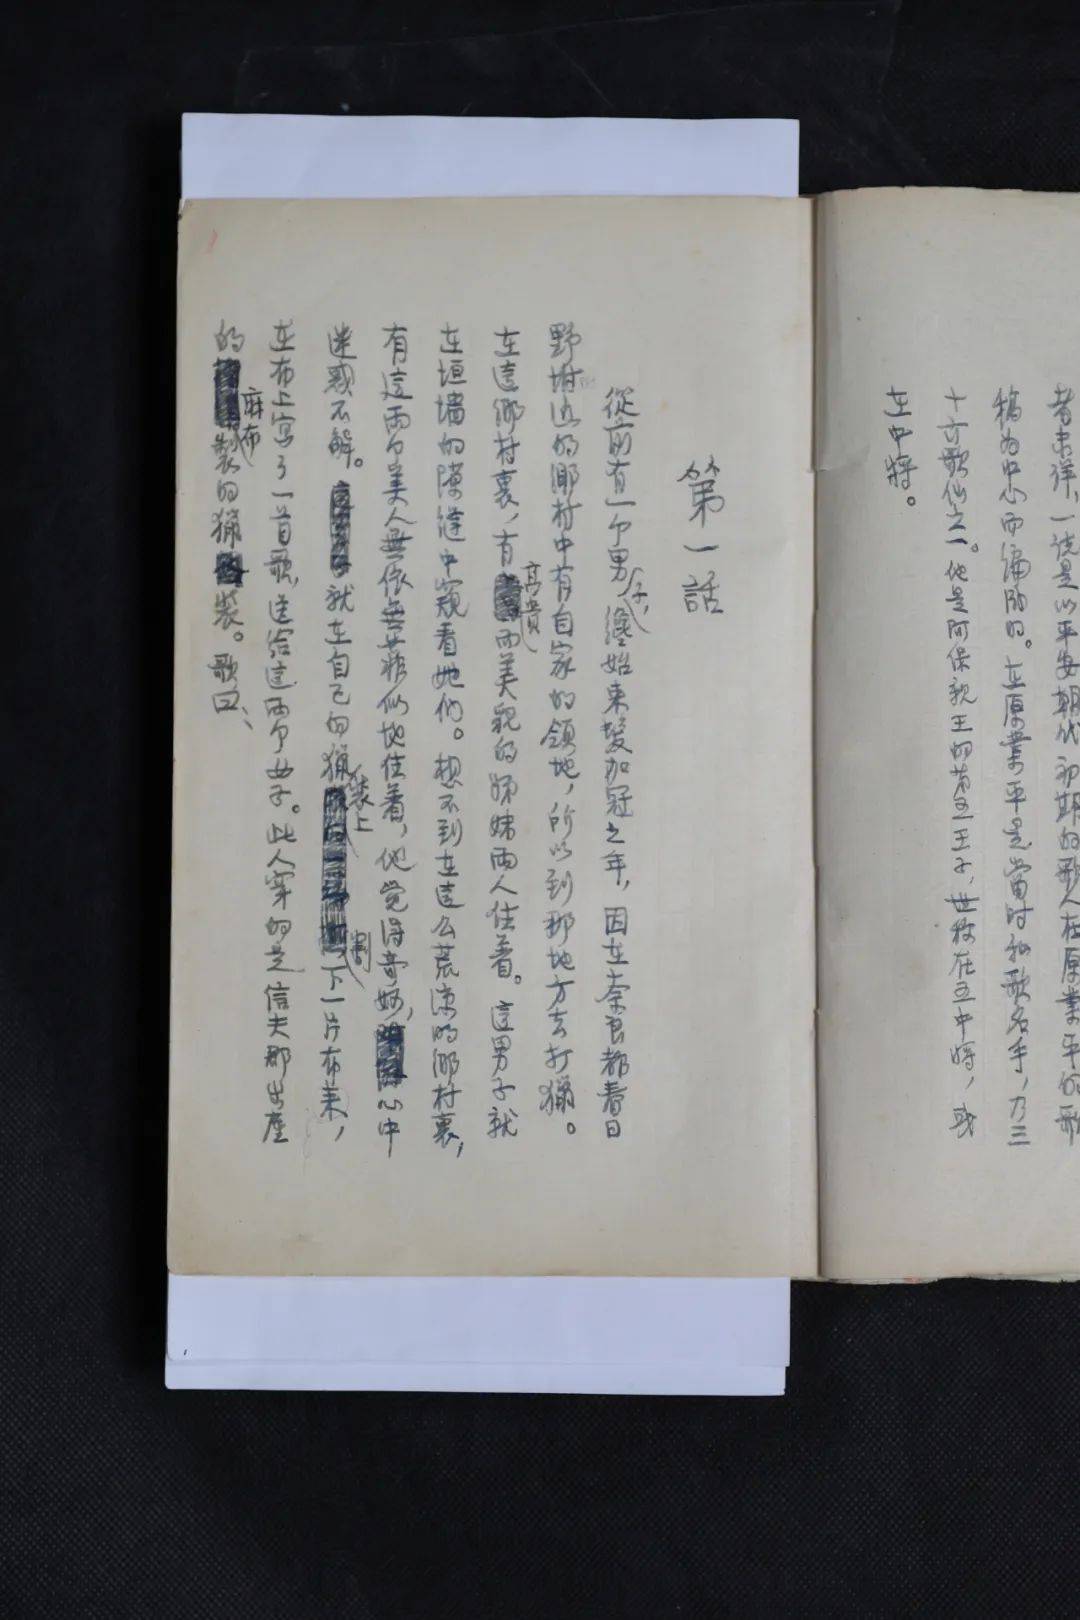 者未詳，一說是以平安朝代初期的歌人在原業平的歌
稿为中心而編的。在原業平是當时和歌名手，乃三
十六歌仙之一。他是阿保親王的第五王子，世称在五中将，或
在中将。
第一話
從前有一个男子，纔始束髮加冠之年，因在奈良都春日
野坿近的鄉村中有自家的領地，所以到那地方去打獵。
在這鄉村裏，有高貴而美貌的姊妹兩人住着。這男子就
在垣墻的隙縫中窺看她们。想不到在這么荒凉的鄉村裏，
有這兩个美人無依無靠似地住着，他觉得奇妙，心中
迷惑不解。就在自己的獵装上割下一片布来，
在布上写了一首歌，送给這兩个女子。此人穿的是信夫郡出産
的麻布製的獵装。歌曰、